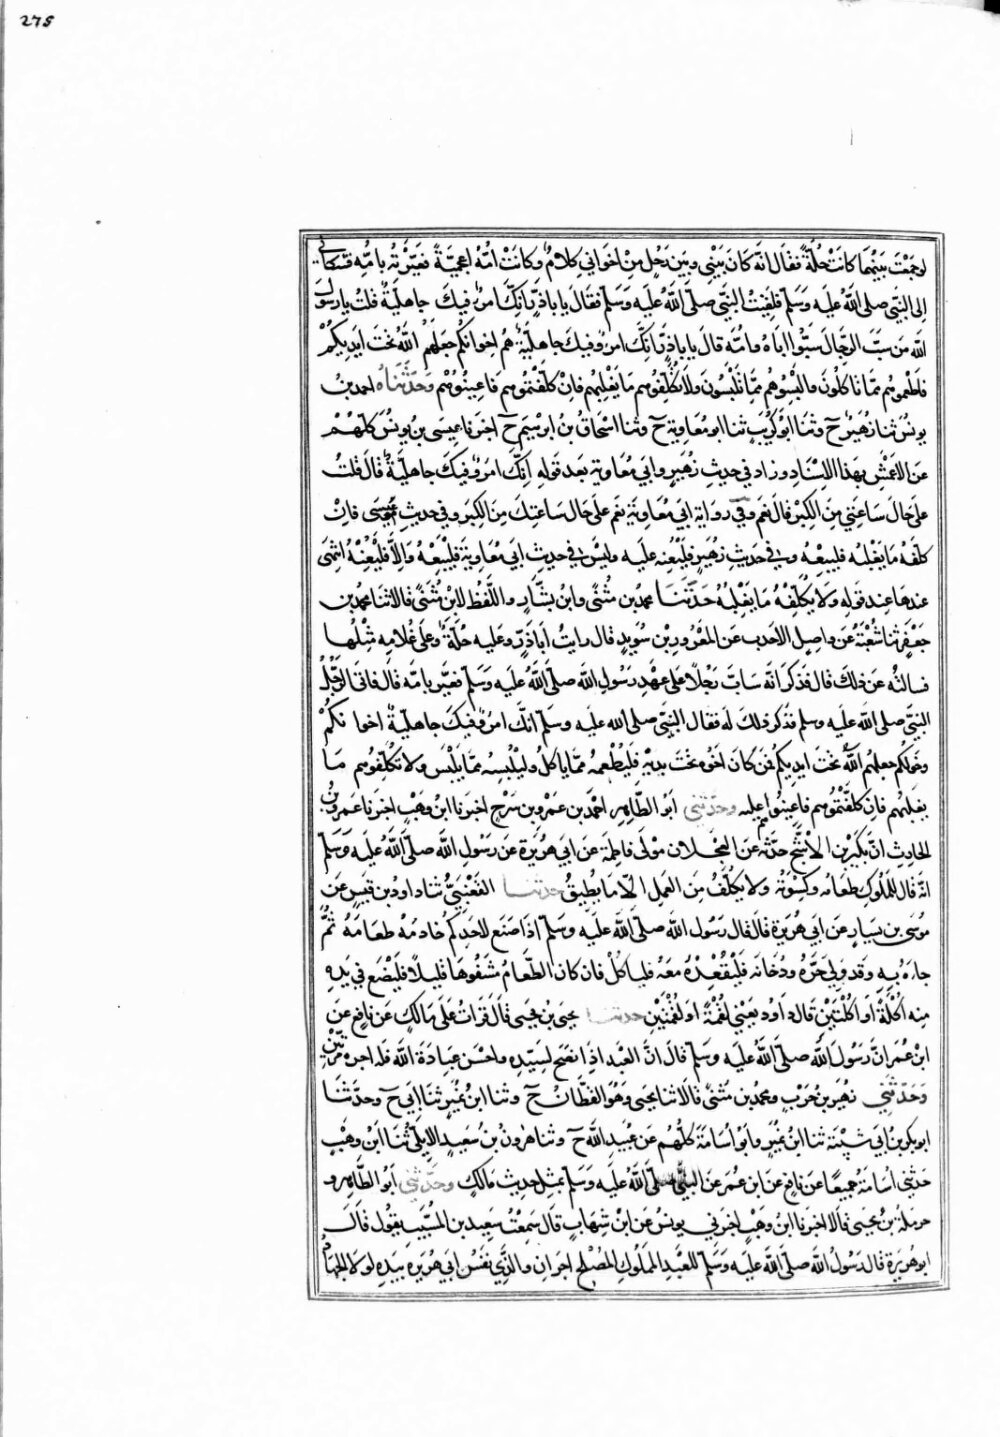 275
لو جمعت بينهما كانت حلة فقال انه كان بيني وبين رجل من اخواني كلام وكانت امه اعجمية فعيرته بامه فشكاني
الى النبي صلى الله عليه وسلم فلقيت النبي صلى الله عليه وسلم فقال يا با ذر انك امرؤ فيك جاهلية قلت يا رسول
الله من سب الرجال سبوا اباه وامه قال يا با ذر انك امرؤ فيك جاهلية هم اخوانكم جعلهم الله تحت ايديكم
فاطعموهم مما تاكلون والبسوهم مما تلبسون ولا تكلفوهم ما يغلبهم فان كلفتموهم فاعينوهم وحدثناه احمد بن
يونس ثنا زهير ح وثنا ابو كريب ثنا ابو معاوية ح وثنا اسحاق بن ابرهيم ح اخبرنا عيسى بن يونس كلهم
عن الاعمش بهذا الاسناد وزاد في حديث زهير وابي معاوية بعد قوله انك امرؤ فيك جاهلية قال قلت
على حال ساعتي من الكبر قال نعم وفي رواية ابي معاوية نعم على حال ساعتك من الكبر وفي حديث عيسى فان
كلفه ما يغلبه فليبعه وفي حديث زهير فليعنه عليه وليس في حديث ابي معاوية فليبعه ولا فليعنه انتهى
عندها عند قوله ولا يكلفه ما يغلبه حدثنا محمد بن مثنى وابن بشار واللفظ لابن مثنى قالا ثنا محمد بن
جعفر ثنا شعبة عن واصل الاحدب عن المعرور بن سويد قال رايت اباذر وعليه حلة وعلى غلامه مثلها
فسالته عن ذلك قال فذكر انه ساب رجلا على عهد رسول الله صلى الله عليه وسلم فعيره بامه قال فاتى الرجل
النبي صلى الله عليه وسلم فذكر ذلك له فقال النبي صلى الله عليه وسلم انك امرؤ فيك جاهلية اخوانكم
وخولكم جعلهم الله تحت ايديكم فمن كان اخوه تحت يديه فليطعمه مما ياكل وليلبسه مما يلبس ولا تكلفوهم ما
يغلبهم فان كلفتموهم فاعينوهم عليه وحدثني ابو الطاهر احمد بن عمرو بن سرح اخبرنا ابن وهب اخبرنا عمرو بن
الحارث ان بكير بن الاشج حدثه عن العجلان مولى فاطمة عن ابي هريرة عن رسول الله صلى الله عليه وسلم
انه قال للملوك طعامه وكسوته ولا يكلف من العمل الا ما يطيق حدثنا القعنبي ثنا داود بن قيس عن
موسى بن يسار عن ابي هريرة قال قال رسول الله صلى الله عليه وسلم اذا صنع لاحدكم خادمه طعامه ثم
جاءه به وقد ولي حره ودخانه فليقعده معه فلياكل فان كان الطعام مشفوها قليلا فليضع في يده
منه اكلة او اكلتين قال داود يعني لقمة او لقمتين حدثنا يحيى بن يحيى قال قرات على مالك عن نافع عن
ابن عمر ان رسول الله صلى الله عليه وسلم قال ان العبد اذا نصح لسيده واحسن عبادة الله فله اجره مرتين
وحدثني زهير بن حرب ومحمد بن مثنى قالا ثنا يحيى وهو القطان ح وثنا ابن نمير ثنا ابي ح وحدثنا
ابو بكر بن ابي شيبة ثنا ابن نمير وابو اسامة كلهم عن عبيد الله ح وثنا هرون بن سعيد الايلي ثنا ابن وهب
حدثني اسامة جميعا عن نافع عن ابن عمر عن النبي صلى الله عليه وسلم بمثل حديث مالك وحدثني ابو الطاهر و
حرملة بن يحيى قالا اخبرنا ابن وهب اخبرني يونس عن ابن شهاب قال سمعت سعيد بن المسيب يقول قال
ابو هريرة قال رسول الله صلى الله عليه وسلم للعبد المملوك المصلح اجران والذي نفس ابي هريرة بيده لولا الجهاد